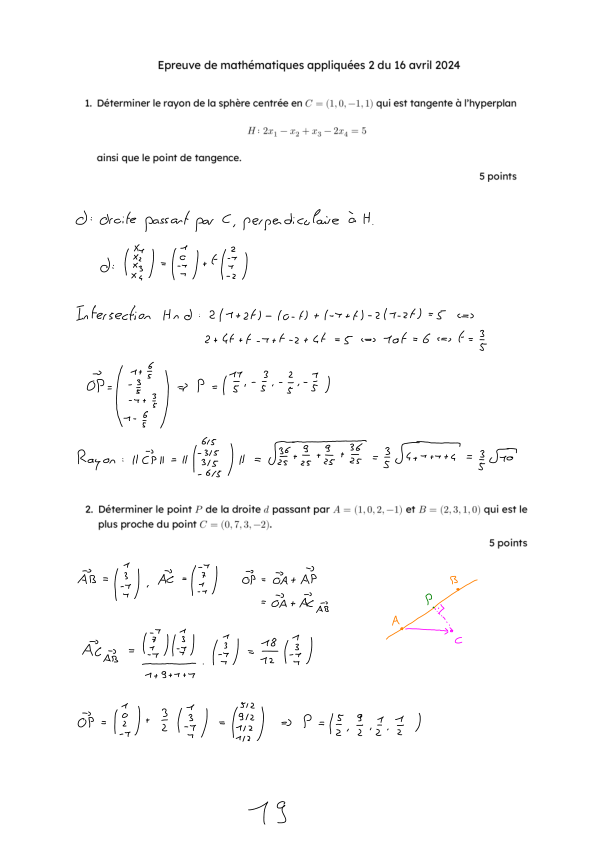 Epreuve de mathématiques appliquées 2 du 16 avril 2024
1. Déterminer le rayon de la sphère centrée en C = (1, 0, −1, 1) qui est tangente à l'hyperplan
H: 2x₁ − x₂ + x₃ − 2x₄ = 5
ainsi que le point de tangence.
5 points
d: droite passant par C, perpendiculaire à H.
d: (x₁ x₂ x₃ x₄) = (1 0 -1 1) + t (2 -1 1 -2)
Intersection H∩d : 2(1+2t) − (0−t) + (−1+t) − 2(1−2t) = 5 ⟺
2 + 4t + t − 1 + t − 2 + 4t = 5 ⟺ 10t = 6 ⟺ t = 3/5
OP→ = (1+6/5 -3/5 -1+3/5 1-6/5) ⇒ P = (11/5, -3/5, -2/5, -1/5)
Rayon : ||CP→|| = ||(6/5 -3/5 3/5 -6/5)|| = √(36/25 + 9/25 + 9/25 + 36/25) = 3/5 √(4+1+1+4) = 3/5 √10
2. Déterminer le point P de la droite d passant par A = (1, 0, 2, −1) et B = (2, 3, 1, 0) qui est le
plus proche du point C = (0, 7, 3, −2).
5 points
AB→ = (1 3 -1 1), AC→ = (-1 7 1 -1) OP→ = OA→ + AP→
= OA→ + AC→ AB→
A P B C
AC→ AB→ = (-1 7 1 -1)(1 3 -1 1) / 1+9+1+1 · (1 3 -1 1) = 18/12 (1 3 -1 1)
OP→ = (1 0 2 -1) + 3/2 (1 3 -1 1) = (5/2 9/2 1/2 1/2) ⇒ P = (5/2, 9/2, 1/2, 1/2)
19